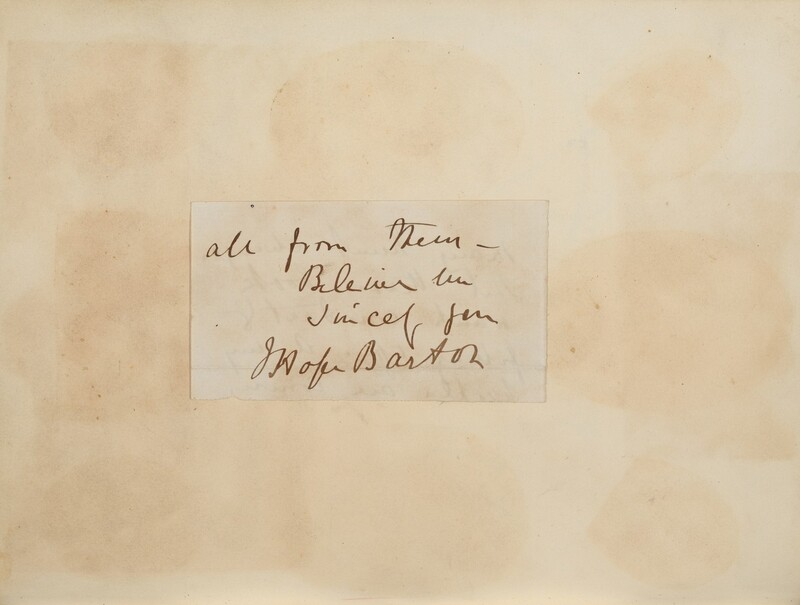 all from them –
Believe me
Sincely yours
J Hope Barton